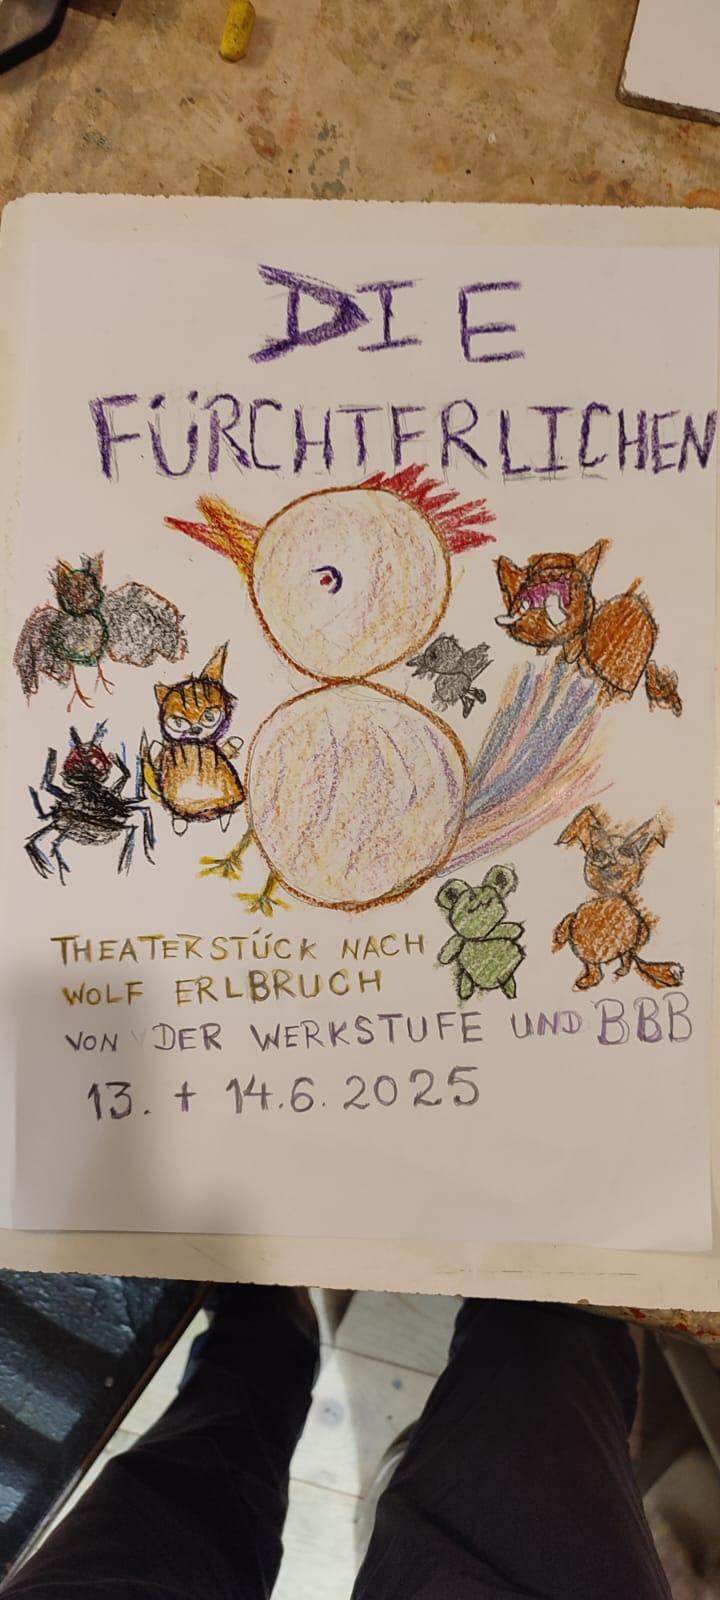 DIE
FÜRCHTERLICHEN
THEATERSTÜCK NACH
WOLF ERLBRUCH
VON DER WERKSTUFE UND BBB
13. + 14.6.2025